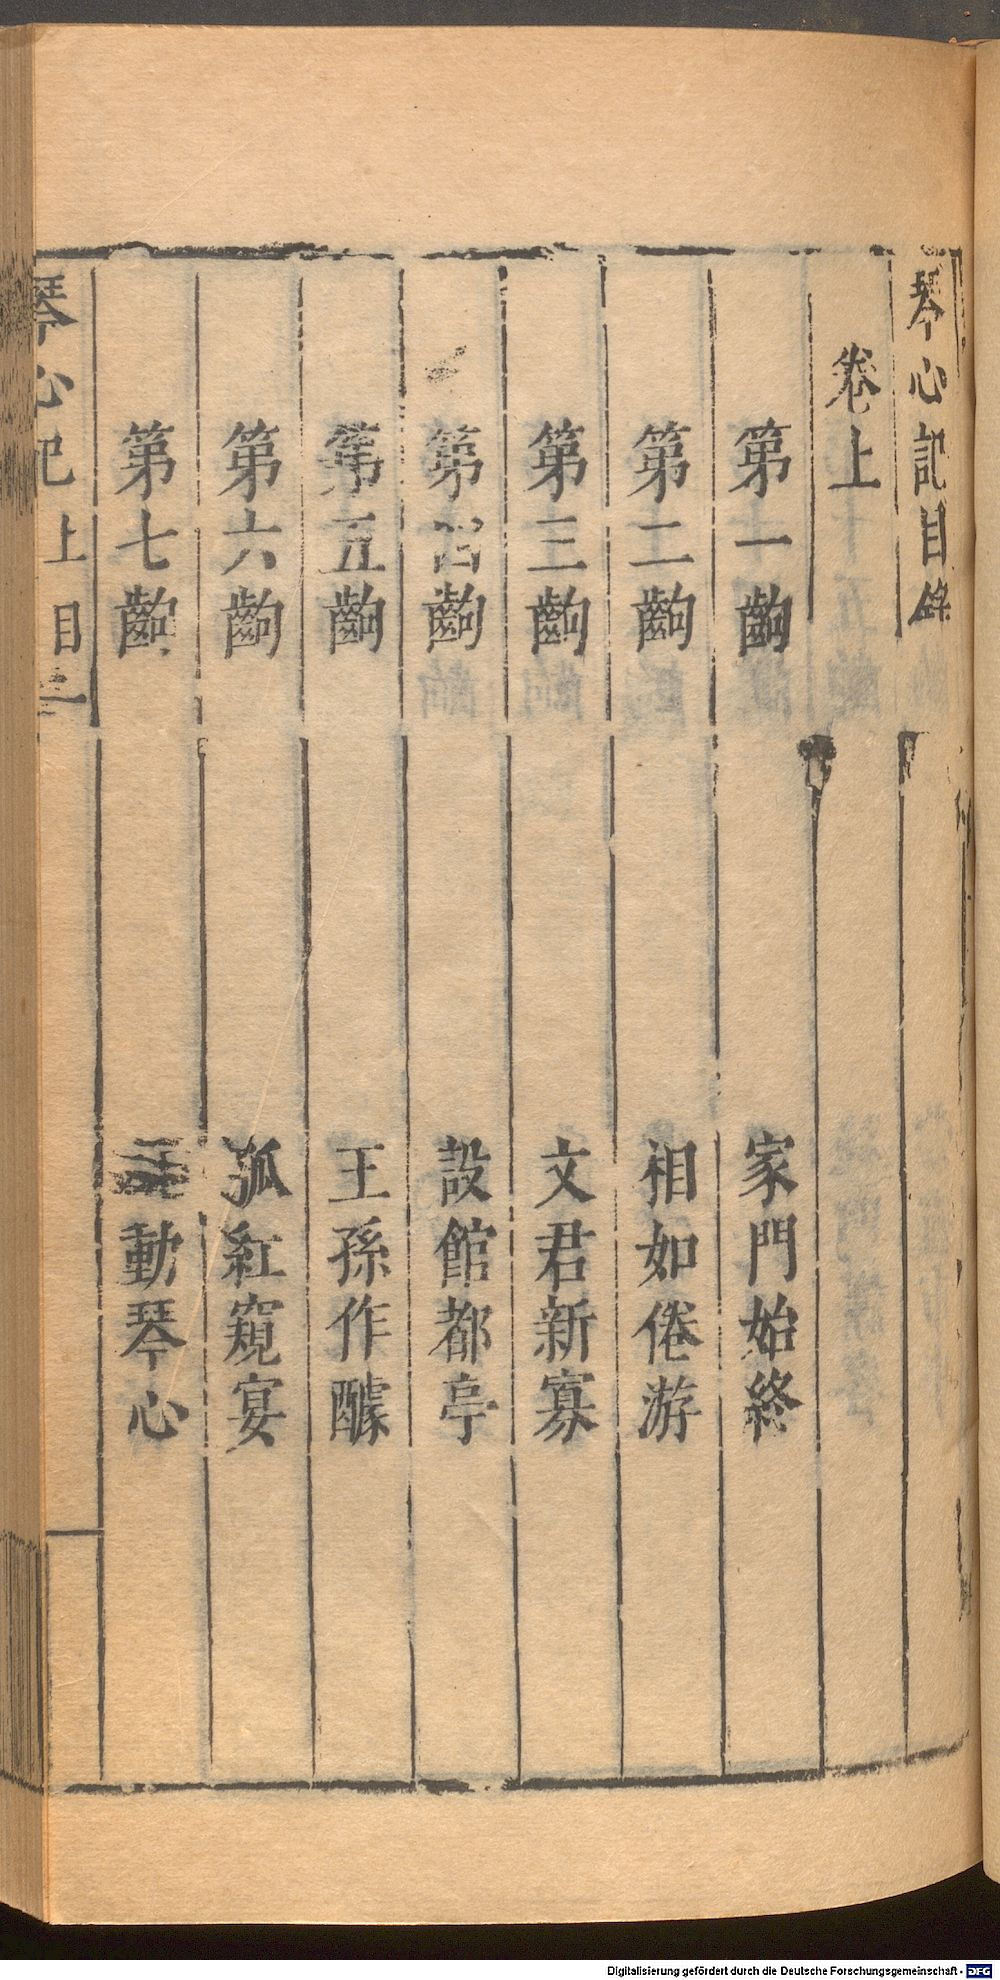 琴心記目錄
卷上
第一齣 家門始終
第二齣 相如倦游
第三齣 文君新寡
第四齣 設館都亭
第五齣 王孫作醵
第六齣 孤紅窺宴
第七齣 動琴心
琴心記 上目
Digitalisierung gefördert durch die Deutsche Forschungsgemeinschaft - DFG